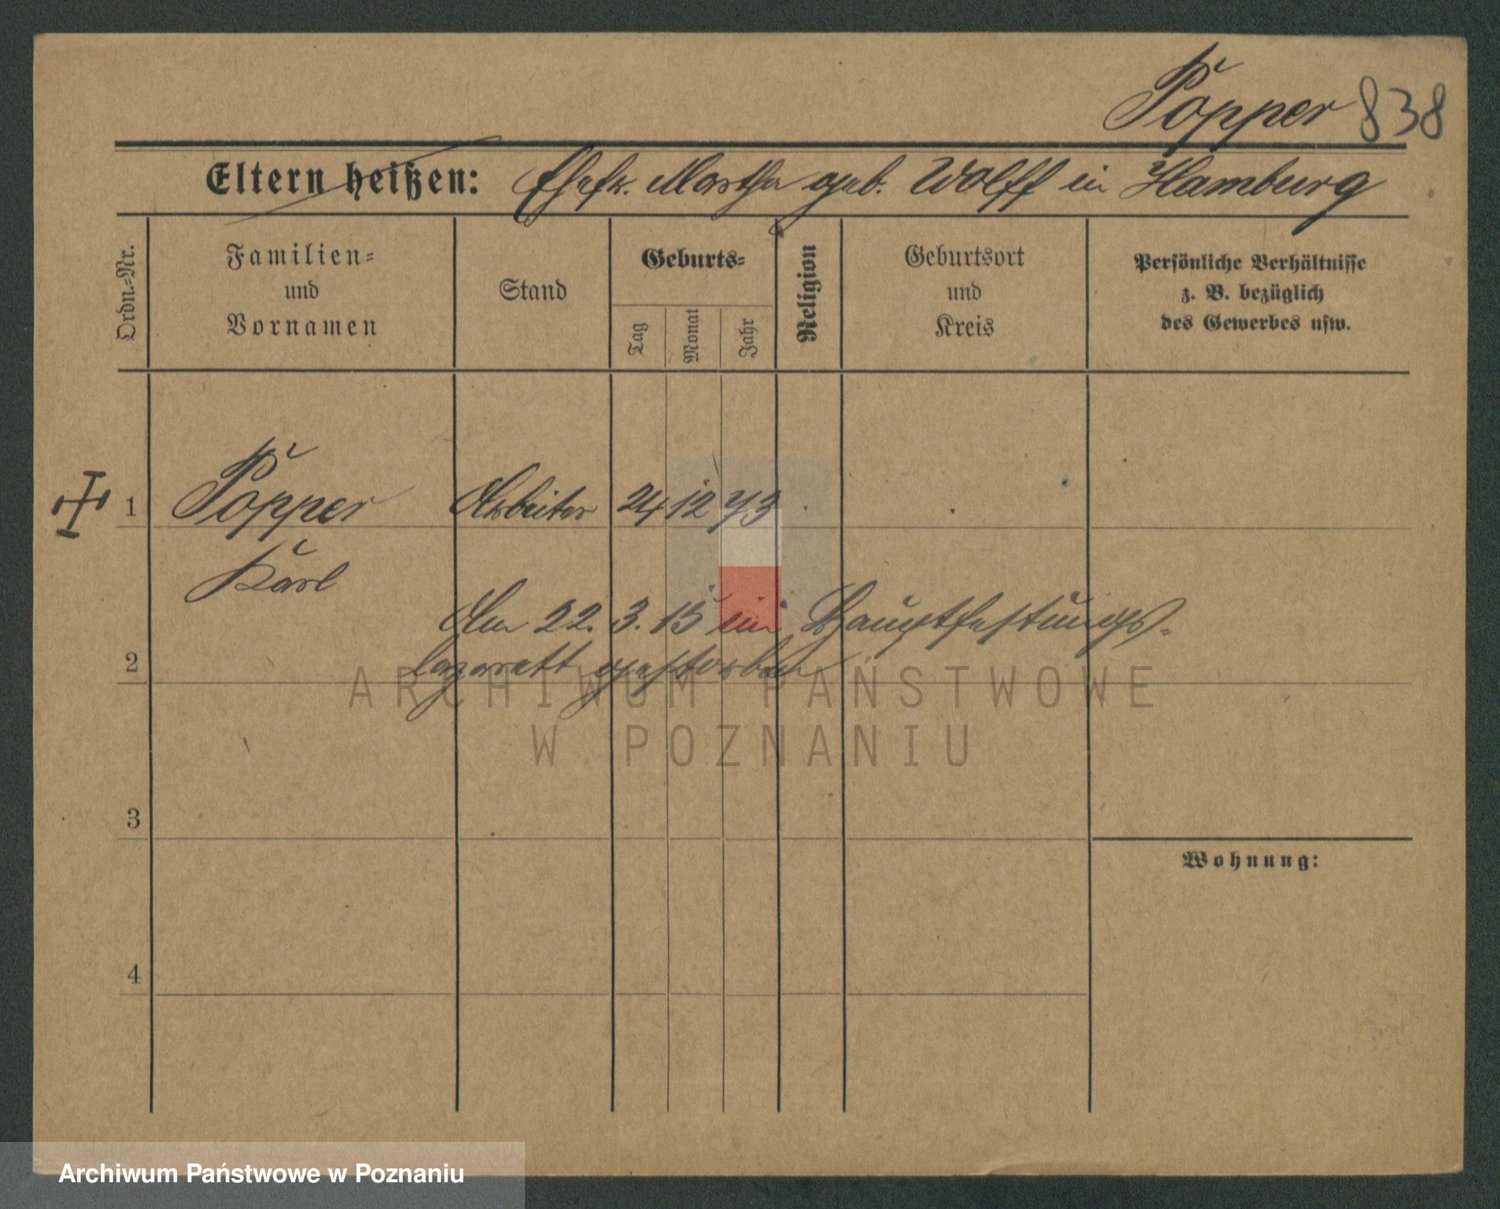 Popper 838
Eltern heißen: Ehefr. Martha geb. Wolff in Hamburg
Ordn.-Nr.
Familien- und Vornamen
Stand
Geburts-
Tag
Monat
Jahr
Religion
Geburtsort und Kreis
Persönliche Verhältnisse
z. B. bezüglich
des Gewerbes usw.
1 Popper Arbeiter 24 12 73
Karl
Am 22. 3. 15 im Hauptfestungs-
2 lazarett gestorben
ARCHIWUM PAŃSTWOWE
W POZNANIU
3
Wohnung:
4
Archiwum Państwowe w Poznaniu